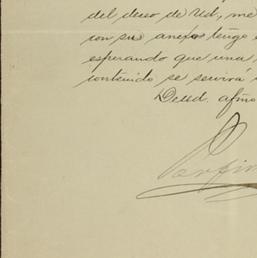 del deseo de Ud, me
con su anexo tengo
esperando que una
contenido se servirá
De ud. afmo
Porfirio